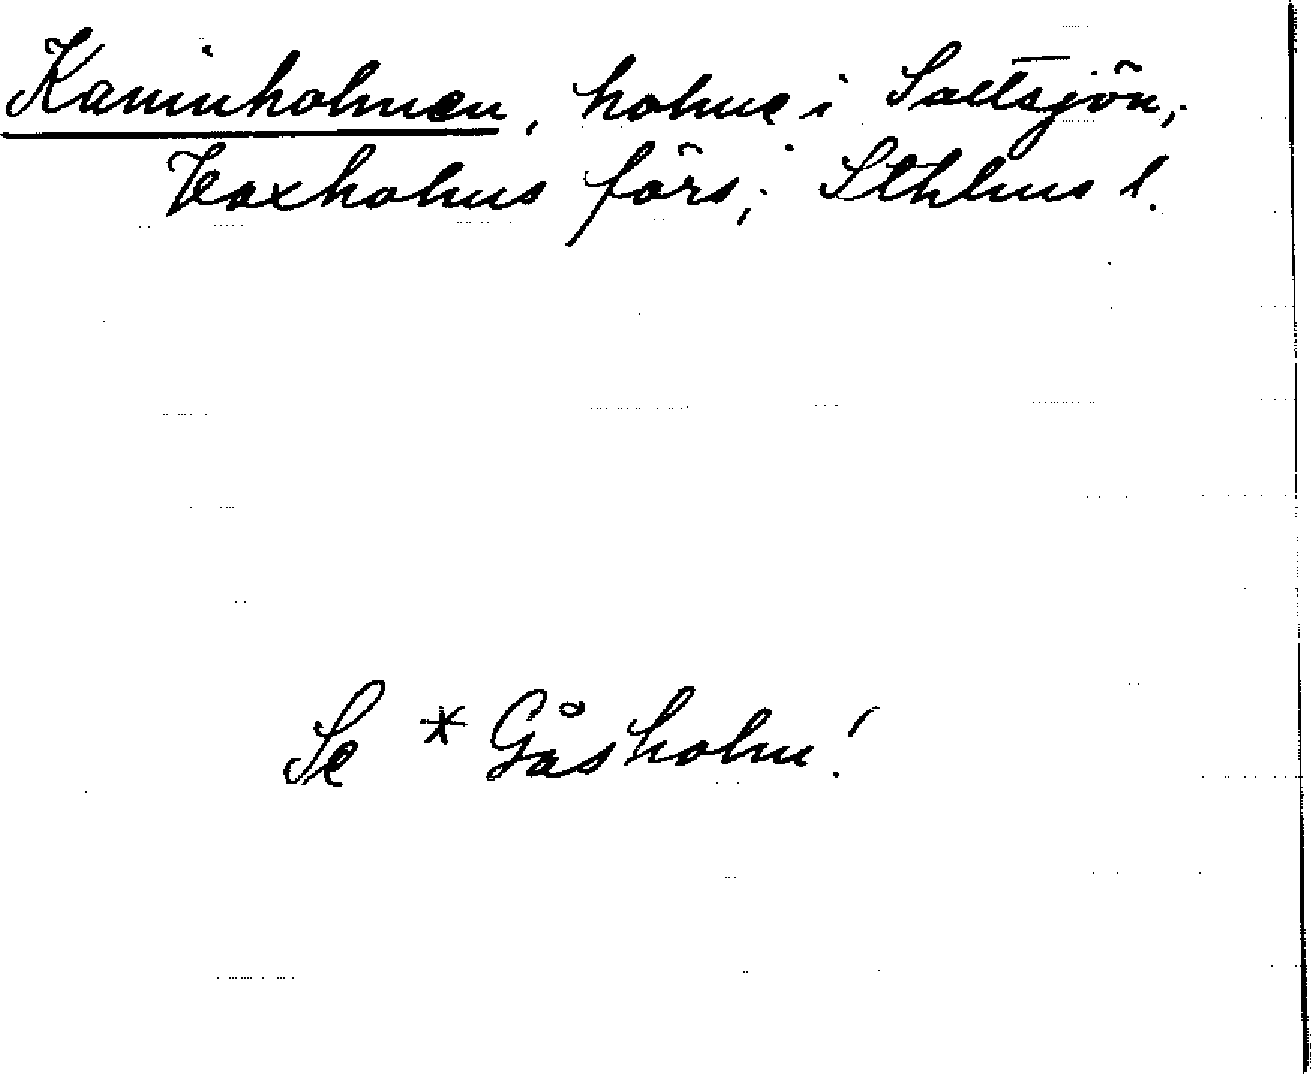 Kaninholmen, holme i Saltsjön,
Vaxholmsförs., Sthlms l.
Se * Gåsholm!